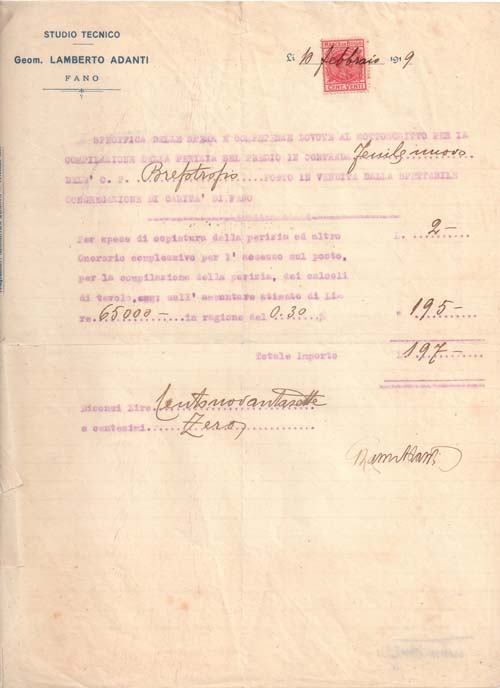 STUDIO TECNICO
Geom. LAMBERTO ADANTI
FANO
Lì 10 febbraio 1919
MARCA DA BOLLO
CENT. VENTI
SPECIFICA DELLE SPESE E COMPETENZE DOVUTE AL SOTTOSCRITTO PER LA
COMPILAZIONE DELLA PERIZIA DEL PREDIO IN CONTRADA Fenile nuovo
DELL' C. P. POSTO IN VENDITA DALLA SPETTABILE
CONGREGAZIONE DI CARITA' DI FANO
Per spese di copiatura della perizia ed altro L. 2 -
Onorario complessivo per l' accesso sul posto,
per la compilazione della perizia, dei calcoli
di tavolo, sull' ammontare stimato di Li-
re. 65000 - in ragione del 0.30 % " 195 -
Totale Importo L 197 -
Diconsi Lire Centonovantasette
e centesimi Zero